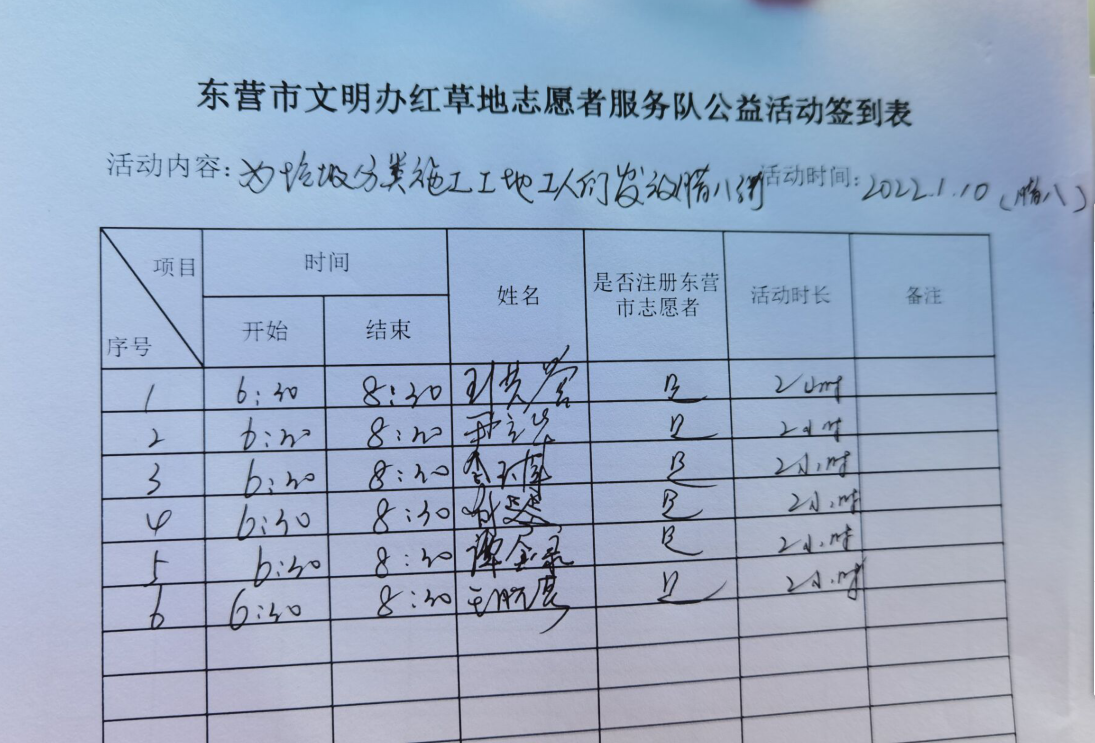 东营市文明办红草地志愿者服务队公益活动签到表
活动内容: 为垃圾分类施工工地工人们发放腊八粥 活动时间: 2022.1.10 (腊八)
项目 时间 姓名 是否注册东营市志愿者 活动时长 备注
序号 开始 结束
1 6:30 8:30 是 2小时
2 6:30 8:30 是 2小时
3 6:30 8:30 是 2小时
4 6:30 8:30 是 2小时
5 6:30 8:30 谭金录 是 2小时
6 6:30 8:30 是 2小时